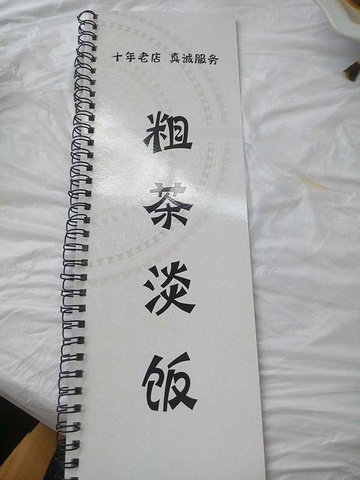 十年老店 真诚服务
粗茶淡饭